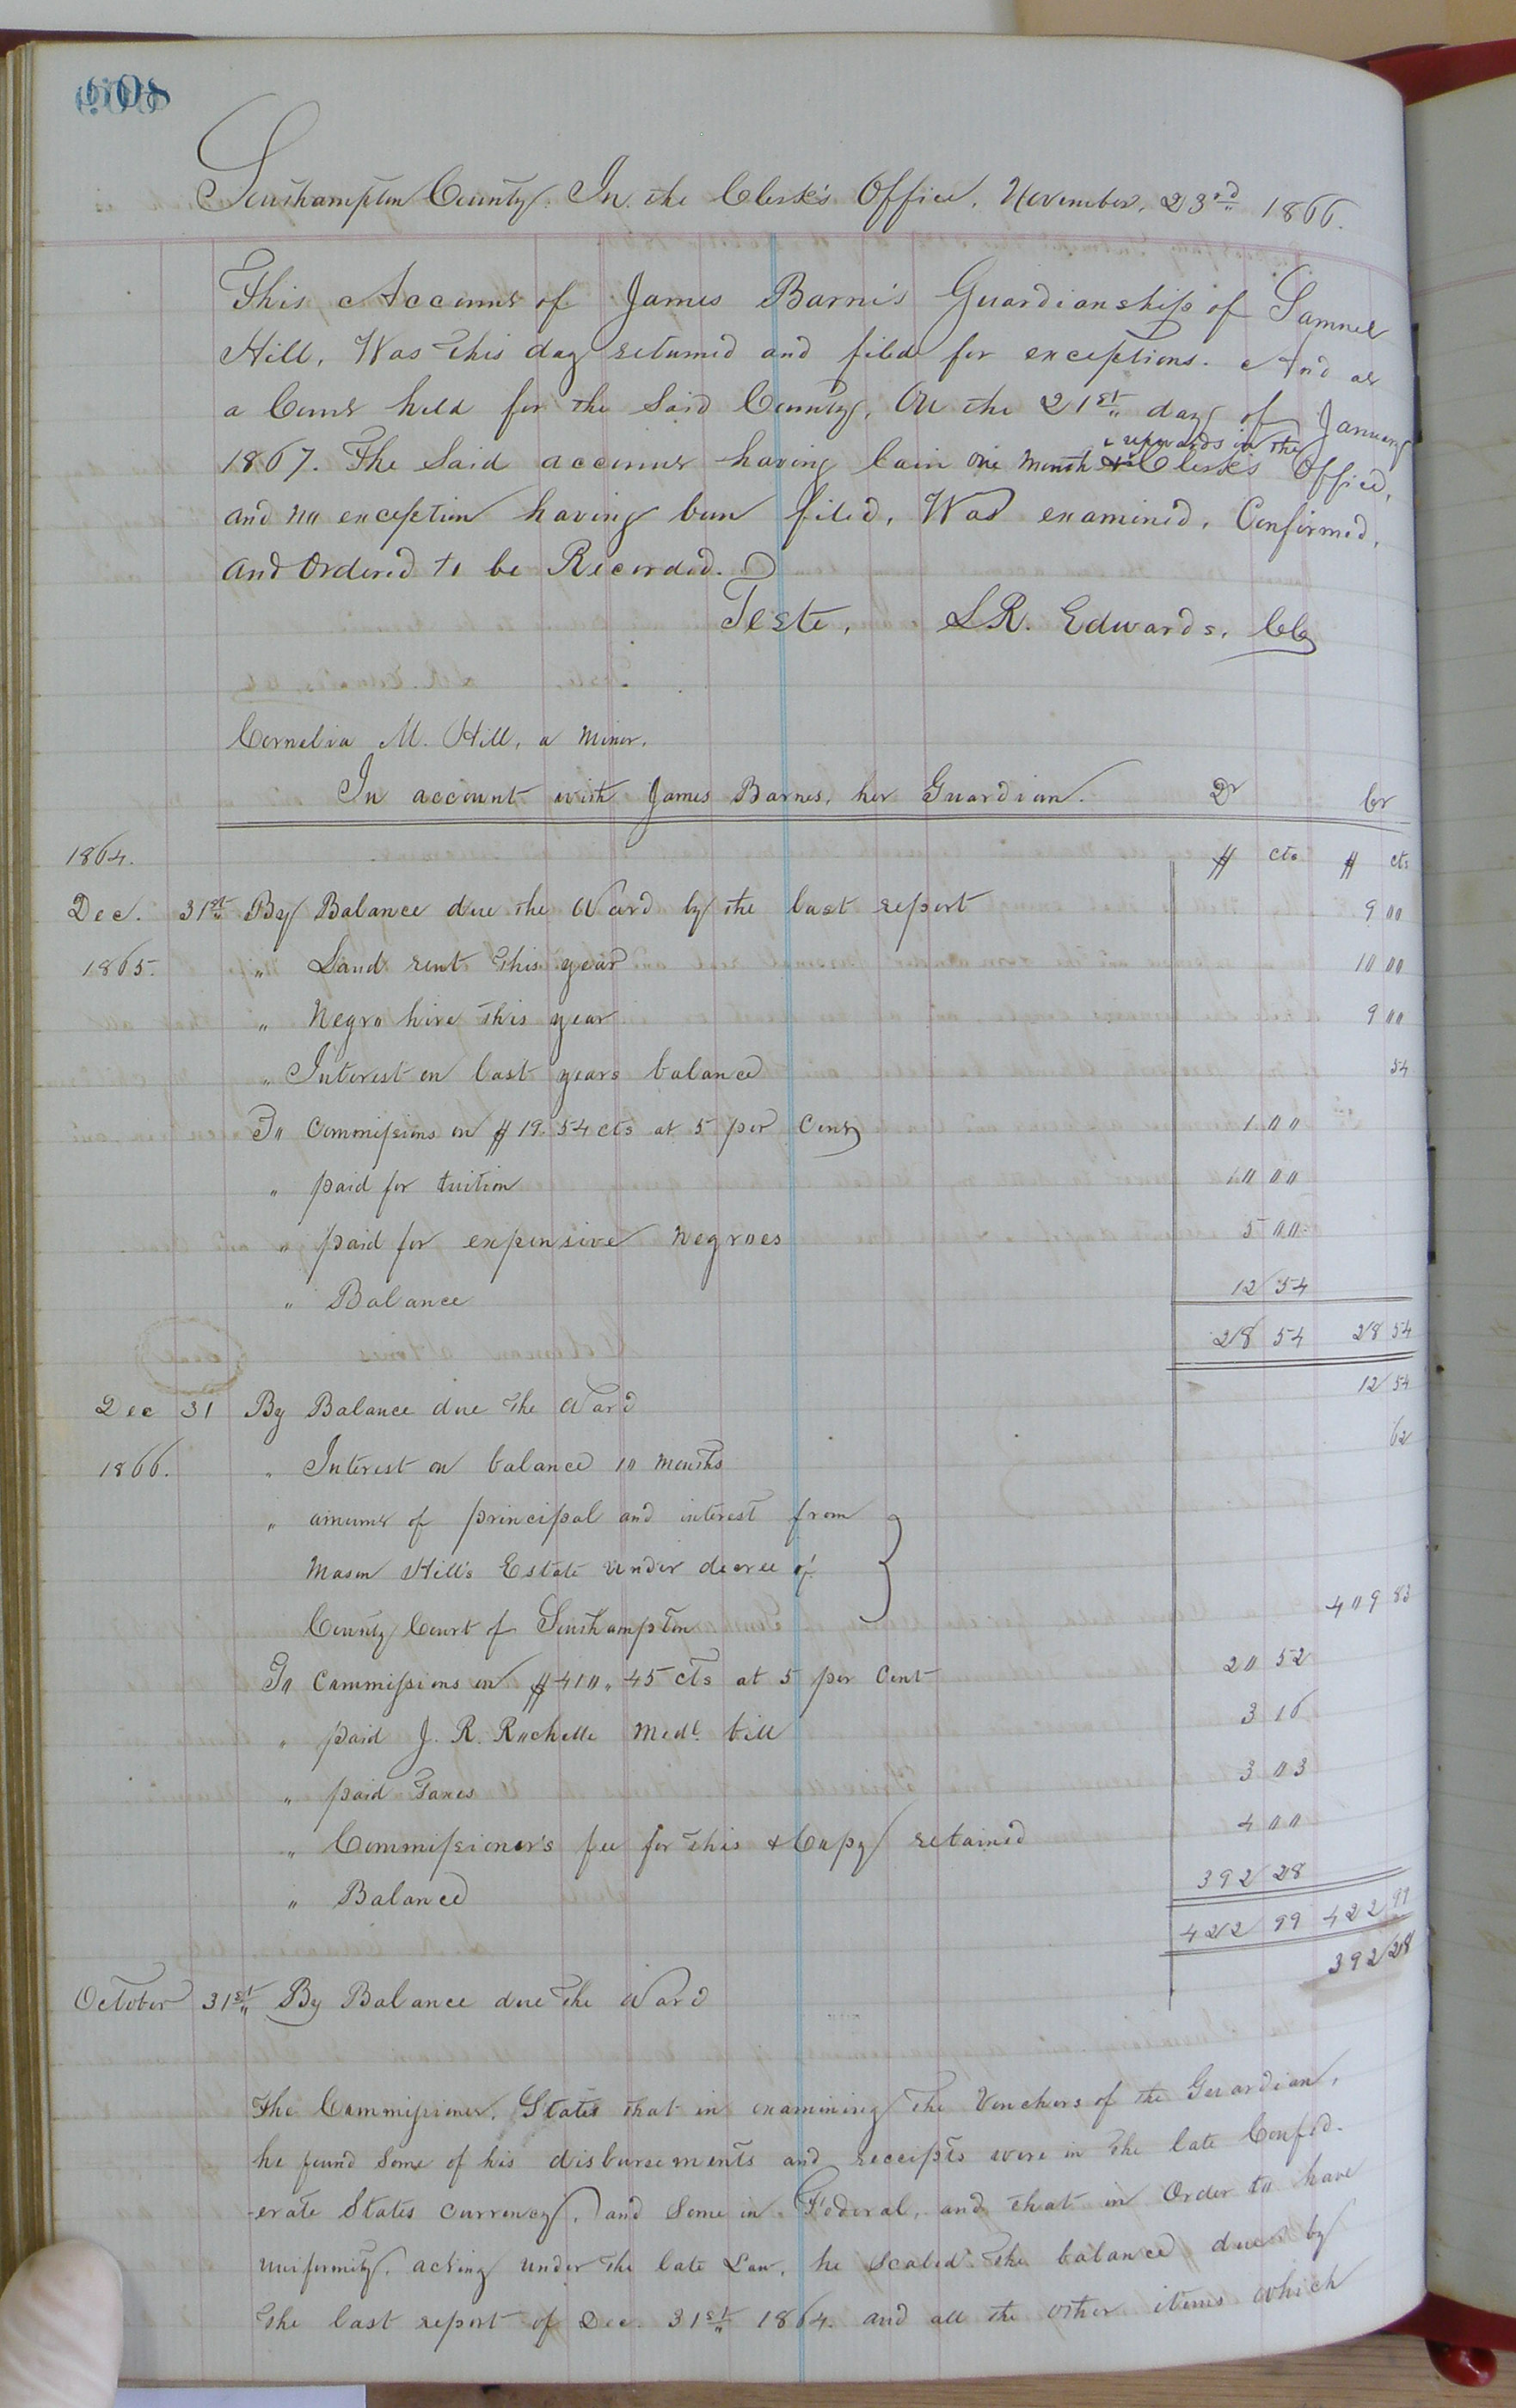 608
Southampton County. In the Clerk's Office, November, 23rd 1866.
This Account of James Barnes Guardianship of Samuel
Hill, Was this day returned and filed for exceptions. And at
a Court held for the Said County, On the 21st day of January
& upwards in the
1867. The Said account having lain one month Clerk's Office,
and no exception having been filed, Was examined, Confirmed,
and Ordered to be Recorded.
Teste, L.R. Edwards, CC
Cornelia M. Hill, a Minor.
In account with James Barnes, her Guardian. Dr Cr
1864. $ cts $ cts
Dec. 31st By Balance due the Ward by the last report 9 00
1865. " Land rent this year 10 00
" Negro hire this year 9 00
" Interest on last years balance 54
To Commissions on $19.54 cts at 5 per Cent 1 00
" paid for tuition 10 00
" paid for expensive Negroes 5 00
" Balance 12 54
28 54 28 54
Dec 31 By Balance due the Ward 12 54
1866. " Interest on balance 10 months 62
" amount of principal and interest from
Mason Hill's Estate under decree of
County Court of Southampton 409 83
To Commissions on $410.45 cts at 5 per Cent 20 52
" paid J. R. Rochelle Medl. bill 3 16
" paid Taxes 3 03
" Commissioner's fee for this & Copy retained 4 00
" Balance 392 28
422 99 422 99
October 31st By Balance due the Ward 392 28
The Commissioner, States that in examining the Vouchers of the Guardian,
he found Some of his disbursements and receipts were in the late Confed-
-erate States currency, and Some in Federal, and that in Order to have
uniformity, acting under the late Law, he scaled the balance due by
the last report of Dec. 31st 1864. and all the other items which